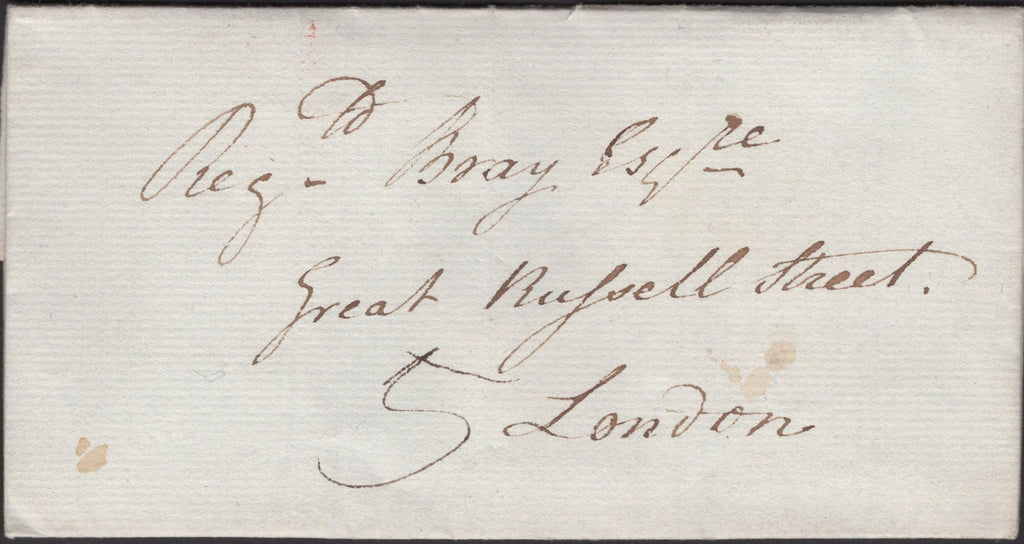 Regd Bray Esqre
Great Russell Street.
5 London